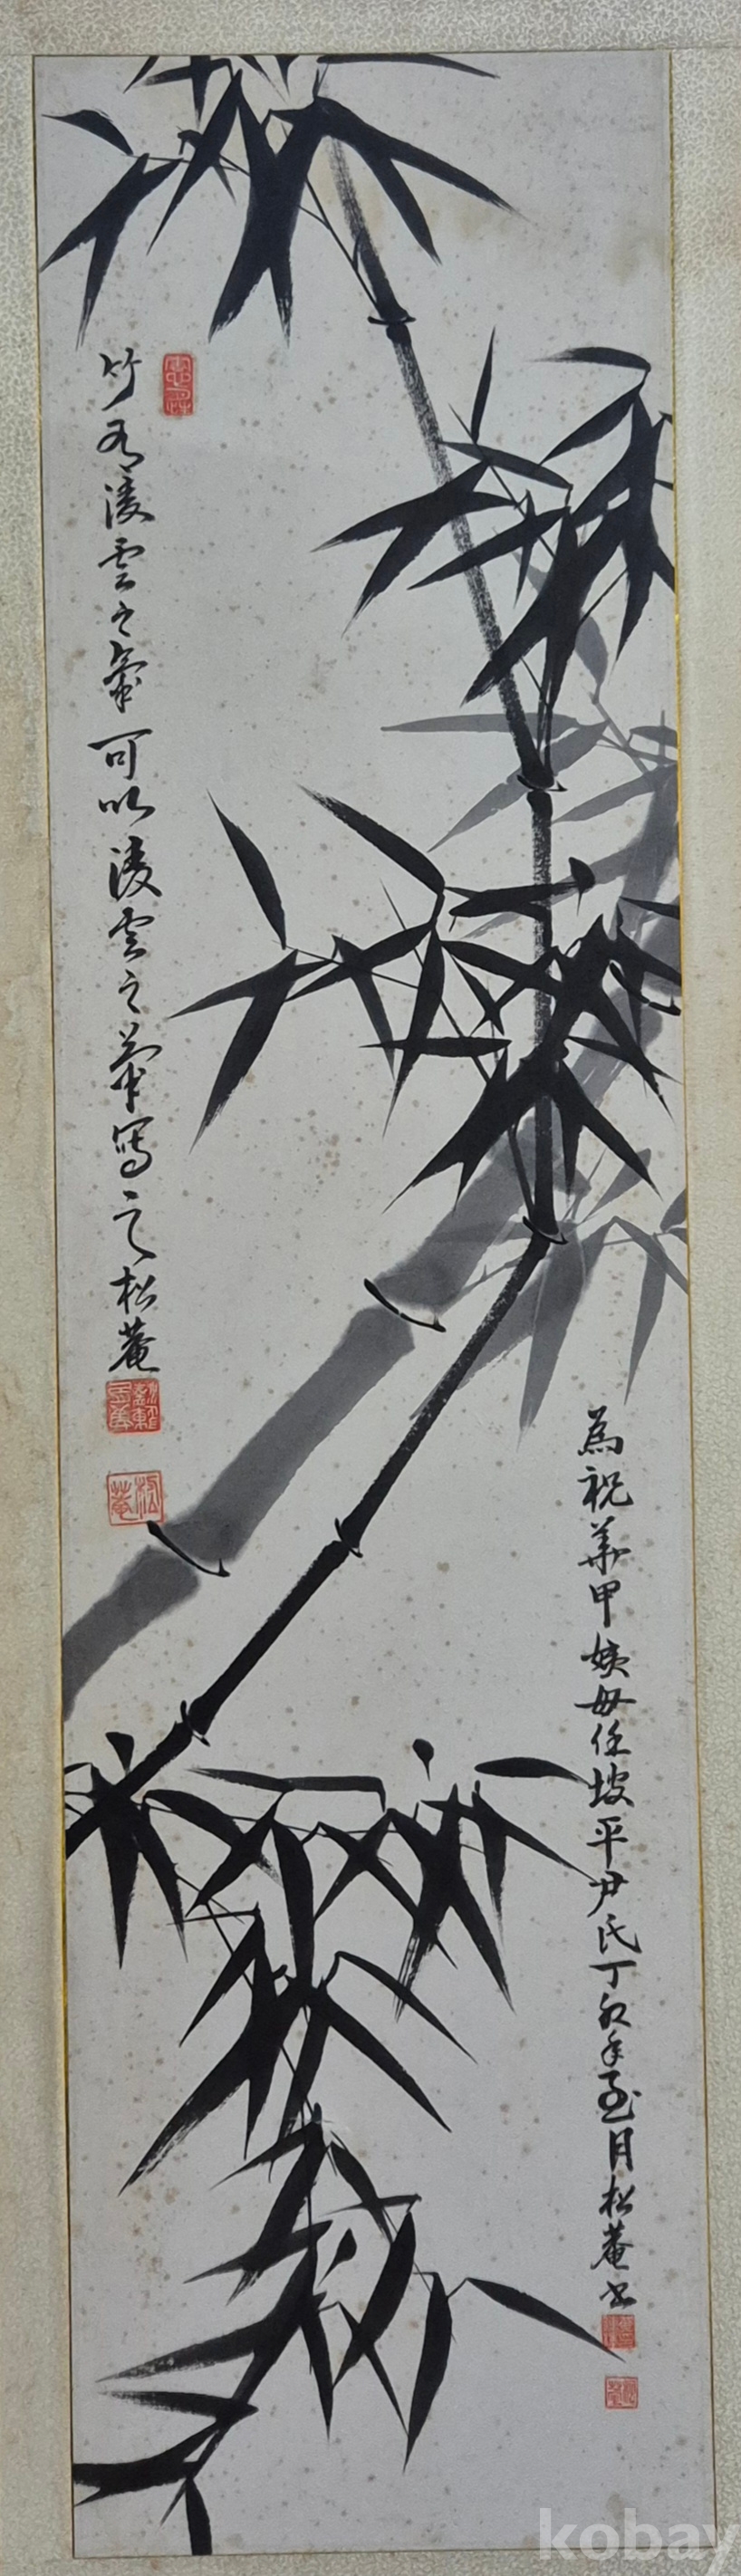 為祝華甲姨母任坡平尹氏丁卯年至月松菴書
竹有凌雲之氣可以凌雲之筆寫之松菴
松菴
kobay